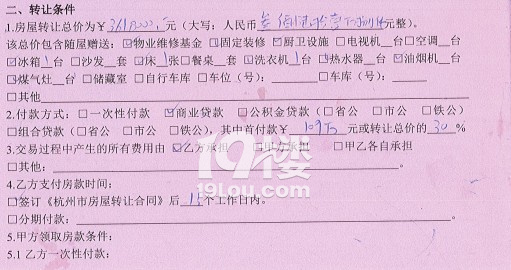 二、转让条件
1.房屋转让总价为￥ 元(大写:人民币 元整)。
该总价包含随屋赠送:☑物业维修基金 ☑固定装修 ☑厨卫设施 □电视机__台□空调__台
☑冰箱1台□沙发__套□床1张□餐桌__套☑洗衣机1台□热水器__台☑油烟机__台
☑煤气灶__台□储藏室 □自行车库□车位(号):____□车库(号):____
□其他
2.付款方式:□一次性付款 ☑商业贷款 □公积金贷款(□省公 □市公 □铁公)
□组合贷款(□省公 □市公 □铁公),其中首付款￥ 109万 元或转让总价的 30 %
3.交易过程中产生的所有费用由 ☑乙方承担 □甲方承担 □甲乙各自承担
□其他:
4.乙方支付房款时间:
□签订《杭州市房屋转让合同》后 15 个工作日内。
□分期付款:
5.甲方领取房款条件:
5.1 乙方一次性付款:
19楼
19lou.com